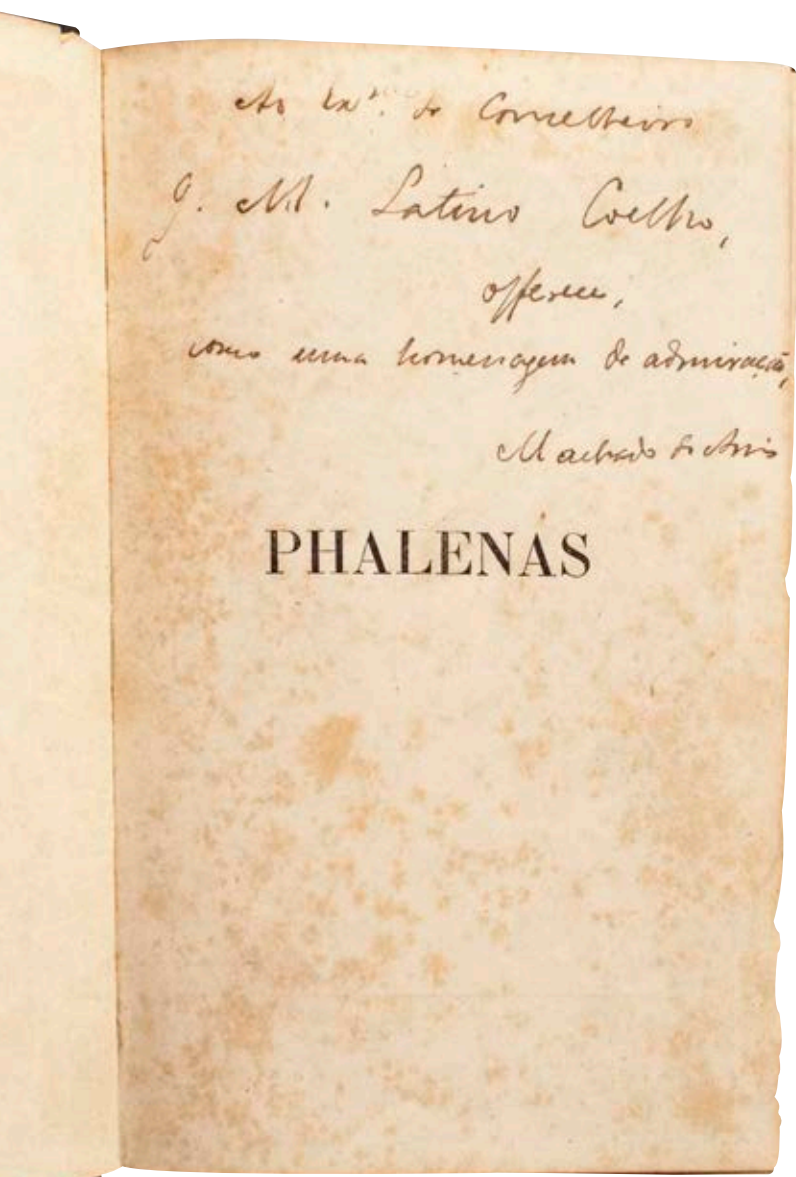 Ao Exmo. Sr. Conselheiro
J. M. Latino Coelho,
offerece,
como uma homenagem de admiração,
Machado de Assis
PHALENAS